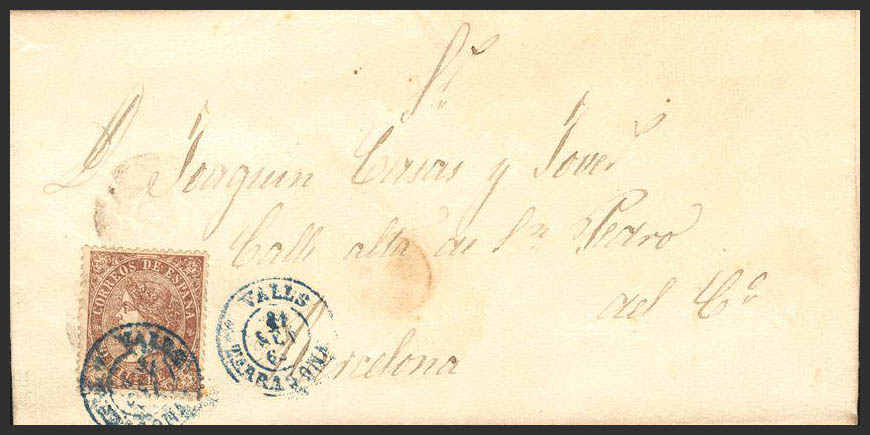 Sr.
D. Joaquin Casas y Jover
Calle alta de Sn. Pedro
del Co.
Barcelona
CORREOS DE ESPAÑA
VALLS
TARRAGONA
VALLS
TARRAGONA